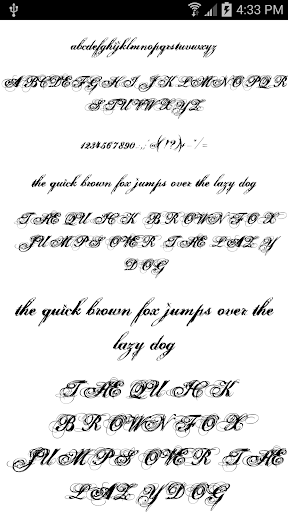 4:33 PM
abcdefghijklmnopqrstuvwxyz
ABCDEFGHIJKLMNOPQR
STUVWXYZ
1234567890.,;:'"(!?)+-*/=
the quick brown fox jumps over the lazy dog
THE QUICK BROWN FOX
JUMPS OVER THE LAZY
DOG
the quick brown fox jumps over the
lazy dog
THE QUICK
BROWN FOX
JUMPS OVER THE
LAZY DOG